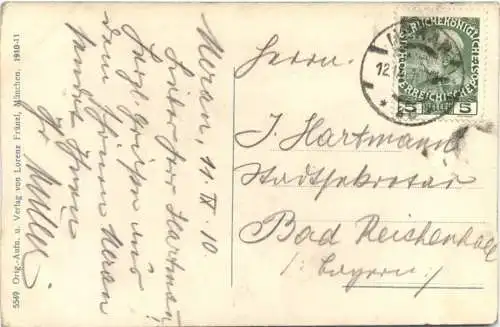 Meran, 11. IX. 10.
Lieber Herr Hartmann
Herzl. Grüße aus
dem schönen Meran
sendet Ihnen
Herrn
J. Hartmann
Stadtsekretär
Bad Reichenhall
/: Bayern :/
5549 Orig.-Aufn. u. Verlag von Lorenz Fränzl, München, 1910-11
12
5 5